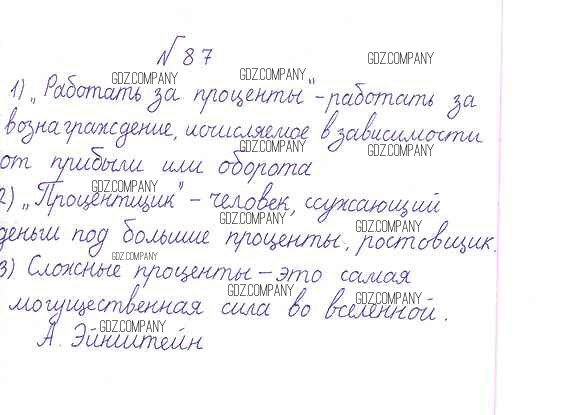 № 87
1) „Работать за проценты" – работать за
вознаграждение, исчисляемое в зависимости
от прибыли или оборота
2) „Процентщик" – человек, ссужающий
деньги под большие проценты, ростовщик.
3) Сложные проценты – это самая
могущественная сила во вселенной.
А. Эйнштейн
GDZ.COMPANY
GDZ.COMPANY
GDZ.COMPANY
GDZ.COMPANY
GDZ.COMPANY
GDZ.COMPANY
GDZ.COMPANY
GDZ.COMPANY
GDZ.COMPANY
GDZ.COMPANY
GDZ.COMPANY
GDZ.COMPANY